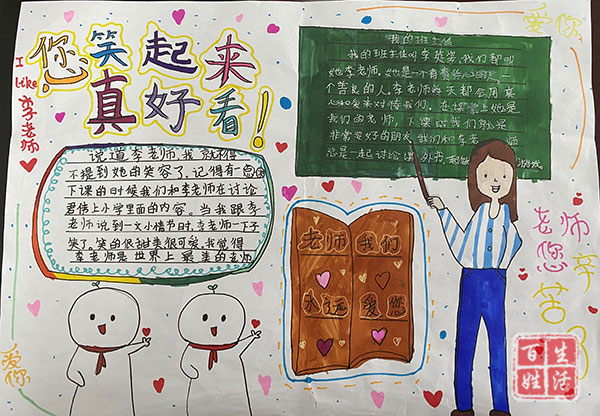 您笑起来
真好看！
I
Like
李老师
爱你
我的班主任
我的班主任叫李英姿,我们都叫
她李老师,她是一个有责任心
一个善良的人,李老师每天都会用真
心和爱来对待我们,在课堂上她是
我们的老师,下课时我们就是
非常要好的朋友,我们和李老师
总是一起讨论课外书,一起做游戏。
说道李老师,我就不得
不提到她的笑容了,记得有一回
下课的时候我们和李老师在讨论
君伟上小学里面的内容。当我跟李
老师说到一次小情节时,李老师一下子
笑了,笑的很甜美很可爱,我觉得
李老师是世界上最美的老师
老师 我们
永远 爱您
老师
您辛
苦了
爱你
百姓生活